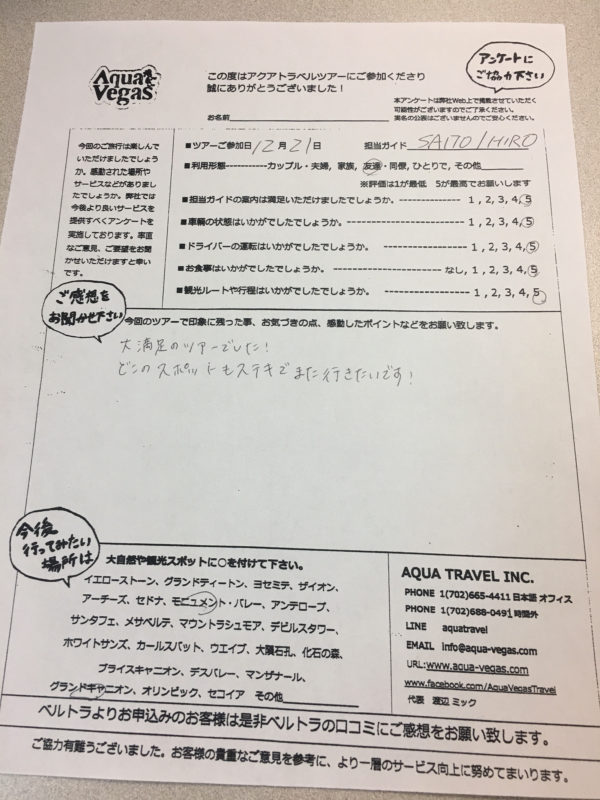 Aqua
Vegas
この度はアクアトラベルツアーにご参加くださり
誠にありがとうございました！
アンケートに
ご協力下さい
本アンケートは弊社Web上で掲載させていただく
可能性がございますのでご了承ください。
実名の公表はございませんのでご安心ください。
お名前
今回のご旅行は楽しんで
いただけましたでしょう
か。感動された場所や
サービスなどがありまし
たでしょうか。弊社では
今後より良いサービスを
提供すべくアンケートを
実施しております。率直
なご意見、ご要望をお聞
かせいただけますと幸い
です。
■ツアーご参加日 12月21日 担当ガイド SAITO/HIRO
■利用形態-----------カップル・夫婦, 家族, 友達・同僚, ひとりで, その他
※評価は1が最低 5が最高でお願いします
■担当ガイドの案内は満足いただけましたでしょうか。-------------- 1, 2, 3, 4, 5
■車輌の状態はいかがでしたでしょうか。-------------------- 1, 2, 3, 4, 5
■ドライバーの運転はいかがでしたでしょうか。 ------------------- 1, 2, 3, 4, 5
■お食事はいかがでしたでしょうか。 -------------------- なし, 1, 2, 3, 4, 5
■観光ルートや行程はいかがでしたでしょうか。 ------------------ 1, 2, 3, 4, 5
ご感想を
お聞かせ下さい
今回のツアーで印象に残った事、お気づきの点、感動したポイントなどをお願い致します。
大満足のツアーでした！
どこのスポットもステキでまた行きたいです！
今後
行ってみたい
場所は
大自然や観光スポットに○を付けて下さい。
イエローストーン、グランドティートン、ヨセミテ、ザイオン、
アーチーズ、セドナ、モニュメント・バレー、アンテロープ、
サンタフェ、メサベルデ、マウントラシュモア、デビルスタワー、
ホワイトサンズ、カールスバット、ウエイブ、大隕石孔、化石の森、
ブライスキャニオン、デスバレー、マンザナール、
グランドキャニオン、オリンピック、セコイア その他
AQUA TRAVEL INC.
PHONE 1(702)665-4411 日本語 オフィス
PHONE 1(702)688-0491 時間外
LINE aquatravel
EMAIL info@aqua-vegas.com
URL:www.aqua-vegas.com
www.facebook.com/AquaVegasTravel
代表 渡辺 ミック
ベルトラよりお申込みのお客様は是非ベルトラの口コミにご感想をお願い致します。
ご協力有難うございました。お客様の貴重なご意見を参考に、より一層のサービス向上に努めてまいります。